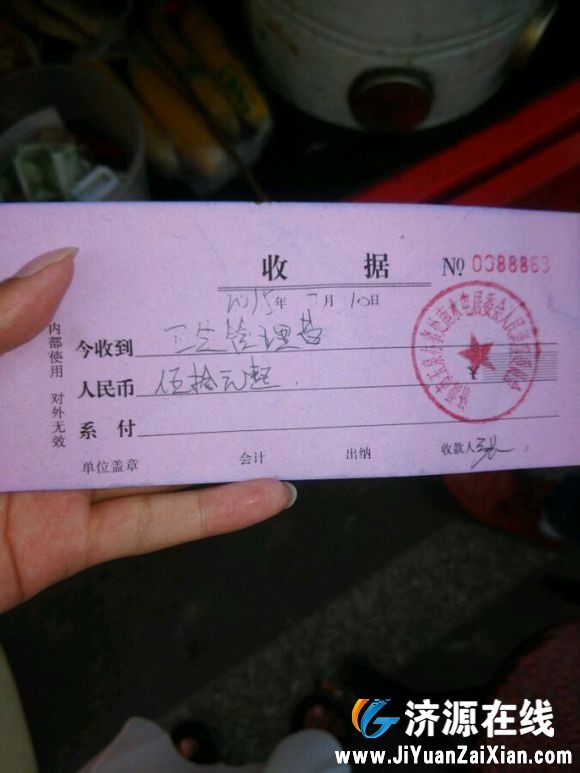 收 据
No 0088863
2015年 月10日
今收到 卫生管理费
人民币 伍拾元整.
系 付
单位盖章 会计 出纳 收款人
内部使用 对外无效
济源在线
www.JiYuanZaiXian.com